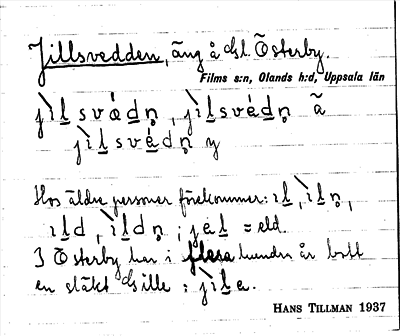 Jillsvedden, äng å Gl. Österby.
Films s:n, Olands h:d, Uppsala län
jìl̲ svæ̀d̲n̥, jìl̲svéd̲n̥ ã
jìl̲svéd̲n̥ y
Hos äldre personer förekommer: ıl̲, ìl̲n̥,
ıl̲d, ìl̲dn̥; jel̲ = eld.
I Österby har i flera hundra år bott
en släkt Gille: jìl̲e.
HANS TILLMAN 1937